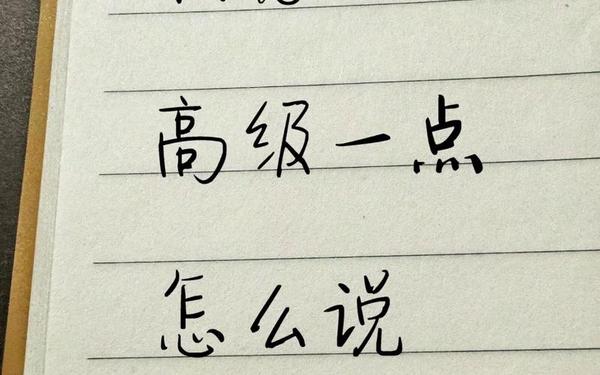 高级一点
怎么说